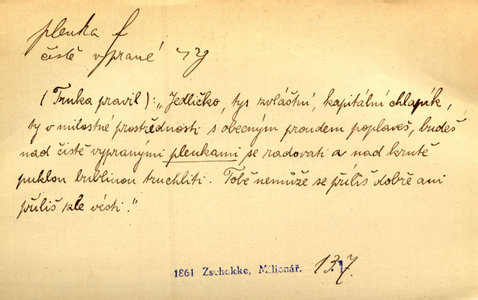 plenka f
čistě vyprané
(Trnka pravil): „Jedličko, tys zvláštní, kapitální chlapík,
ty v milostné prostřednosti s obecným proudem poplaveš, budeš
nad čistě vypranými plenkami se radovati a nad krutě
puklou bublinou truchliti. Tobě nemůže se příliš dobře ani
příliš zle vésti.“
1861 Zschokke, Milionář. 137.